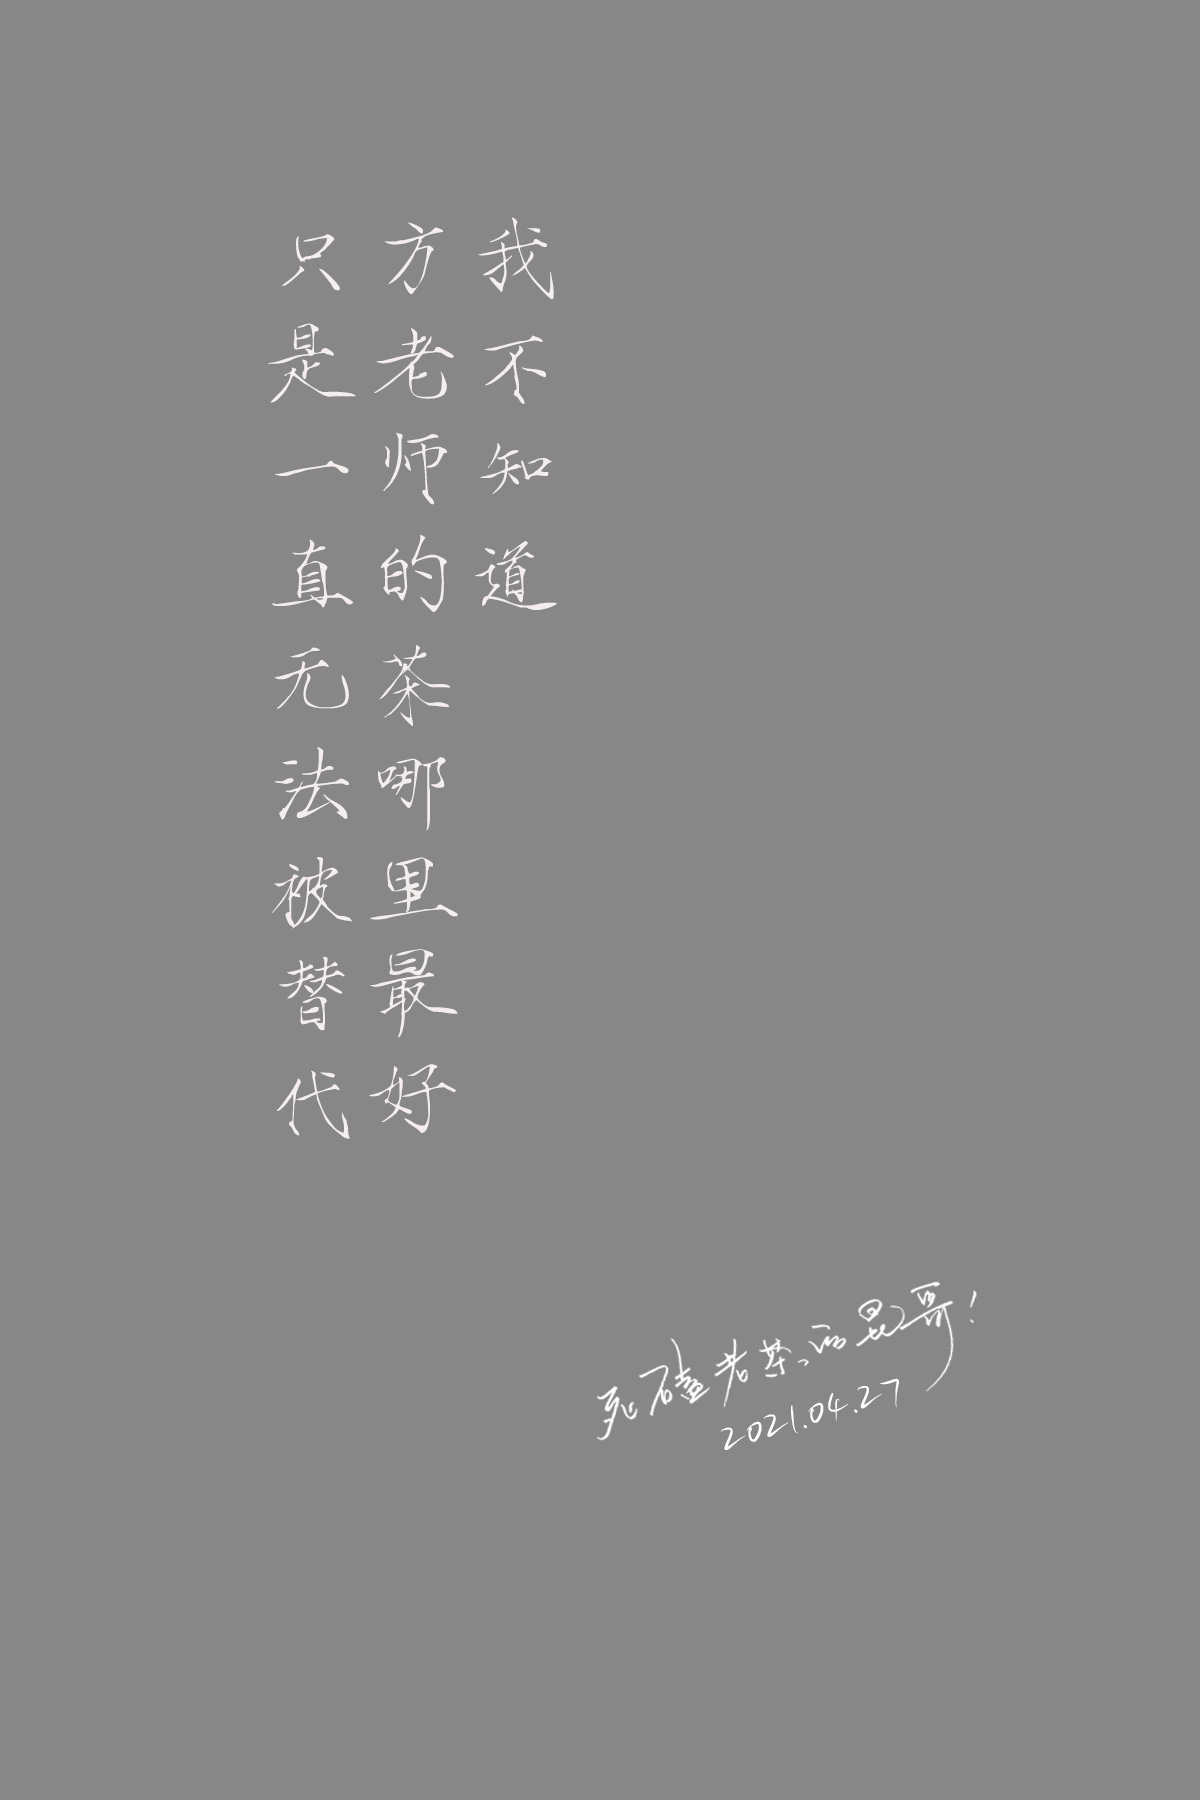 我不知道
方老师的茶哪里最好
只是一直无法被替代
死磕老茶、的昆哥！
2021.04.27